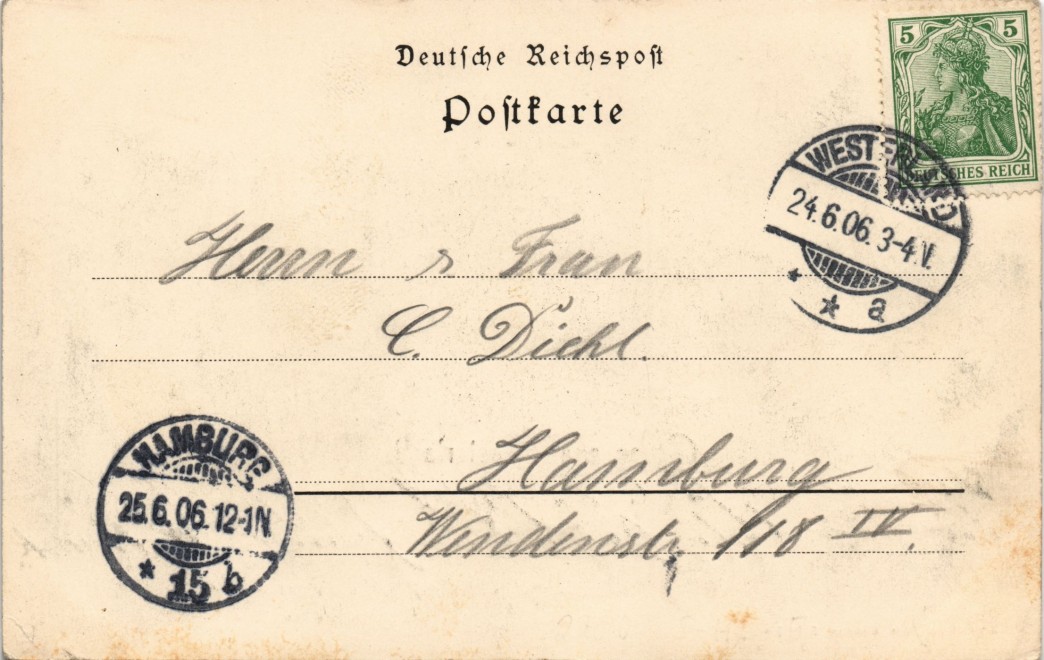 Deutsche Reichspost
Postkarte
5 5
DEUTSCHES REICH
WESTERLAND
24.6.06.3-4.V.
* * a
Herrn & Frau
C. Diehl.
Hamburg
Wendenstr. 118 IV.
HAMBURG
25.6.06.12-1N.
* 15 b